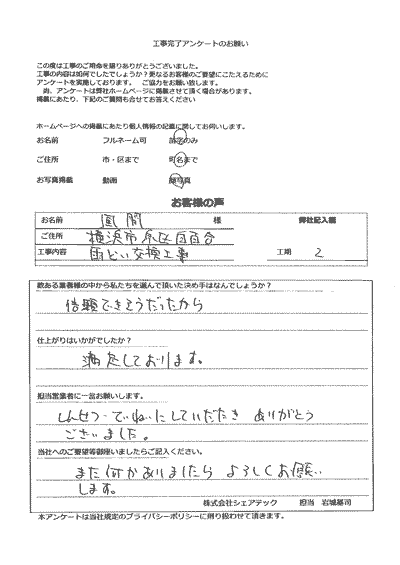 工事完了アンケートのお願い
この度は工事のご用命を賜りありがとうございました。
工事の内容は如何でしたでしょうか？更なるお客様のご要望にこたえるために
アンケートを実施しております。 ご協力をお願い致します。
尚、アンケートは弊社ホームページに掲載させて頂く場合があります。
掲載にあたり、下記のご質問も合せてお答えください
ホームページへの掲載にあたり個人情報の記載に関してお伺いします。
お名前 フルネーム可 苗字のみ
ご住所 市・区まで 町名まで
お写真掲載 動画 顔写真
お客様の声
お名前 風間 様 弊社記入欄
ご住所 横浜市泉区
工事内容 雨どい交換工事 工期 2
数ある業者様の中から私たちを選んで頂いた決め手はなんでしょうか？
信頼できそうだったから
仕上がりはいかがでしたか？
満足しております。
担当営業者に一言お願いします。
しんせつ・ていねいにしていただき ありがとう
ございました。
当社へのご要望等御座いましたらご記入ください。
また何かありましたら よろしくお願い
します。
株式会社シェアテック 担当 岩城慕司
本アンケートは当社規定のプライバシーポリシーに則り扱わせて頂きます。